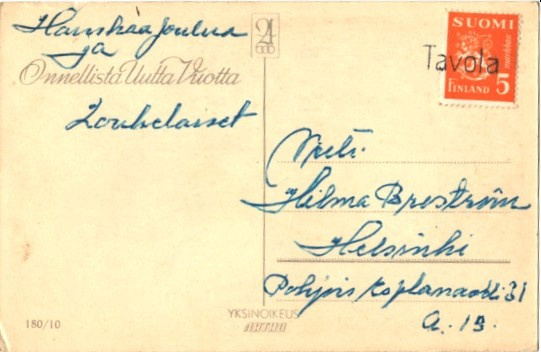 Hauskaa Joulua
ja
Onnellista Uutta Vuotta
Loukelaiset
SUOMI
markkaa
FINLAND 5
Tavola
Neiti
Hilma Breström
Helsinki
Pohjois Esplanaadi 31
A. 19.
180/10
YKSINOIKEUS